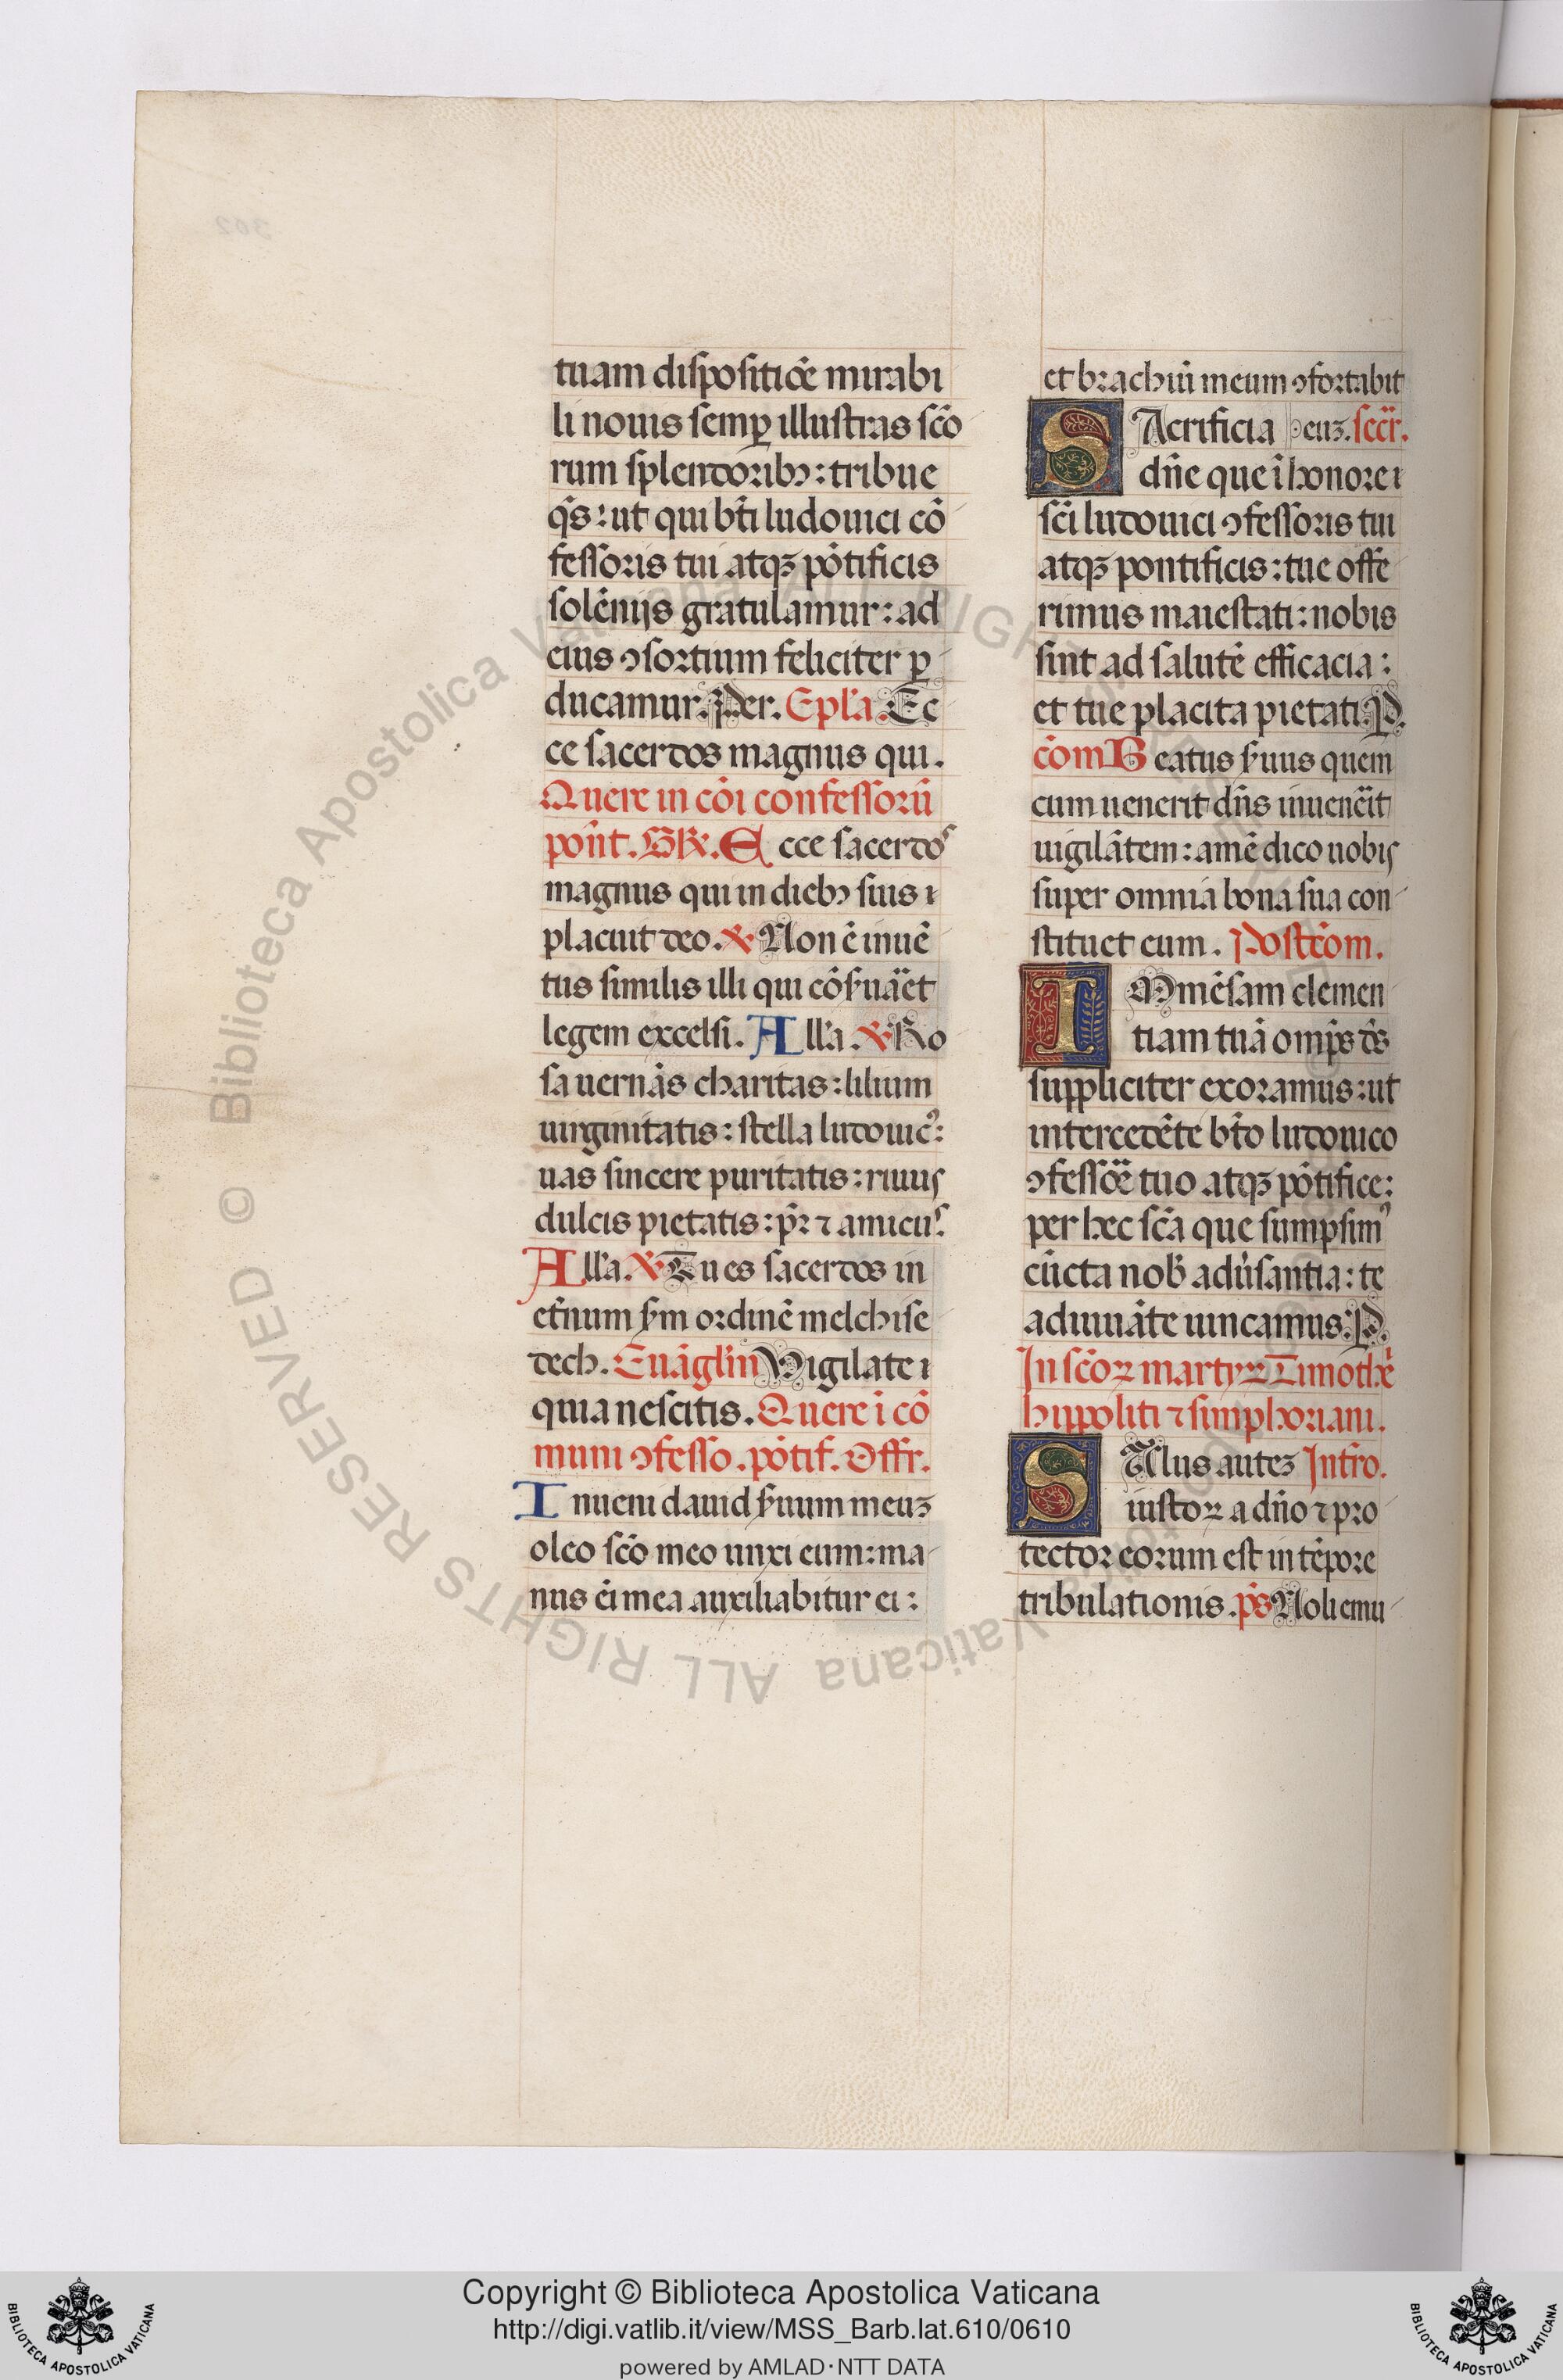 tuam dispositiōe mirabi
li nouis semꝑ illustras scō
rum splendoribꝰ: tribue
q̄s: ut qui bt̄i ludouici cō
fessoris tui atqꝫ pōtificis
solēnijs gratulamur: ad
eius ꝯsortium feliciter ꝑ
ducamur. Per. Ep̄la. Ec
ce sacerdos magnus qui.
Quere in cōi confessorū
pont̄. GR. Ecce sacerdos
magnus qui in diebꝰ suis
placuit deo. ℣ Non ē inuē
tus similis illi qui cōs̄uaret
legem excelsi. All̄a. ℣ Ro
sa uernās charitas: lilium
uirginitatis: stella ludouicꝰ:
uas sincere puritatis: riuus
dulcis pietatis: pr̄ ⁊ amicus.
All̄a. ℣ Tu es sacerdos in
et̄num s̄m ordinē melchise
dech. Euāgl̄iū Vigilate
quia nescitis. Quere ī cō
muni ꝯfesso. pōtif. Offr.
Inueni dauid s̄uum meuꝫ
oleo scō meo unxi eum: ma
nus ei mea auxiliabitur ei:
et brachiū meum ꝯfortabit
SAcrificia eum. secr̄.
dn̄e que ī honore
sc̄i ludouici ꝯfessoris tui
atqꝫ pontificis: tue offe
rimus maiestati: nobis
sint ad salutē efficacia:
et tue placita pietati. P.
cōm Beatus s̄uus quem
cum uenerit dn̄s inuenēit
uigilātem: amē dico uobis
super omnia bona sua con
stituet eum. Postcōm.
IMmēsam clemen
tiam tuā omp̄s ds̄
suppliciter exoramus: ut
intercedēte bt̄o ludouico
ꝯfessōe tuo atqꝫ pōtifice:
per hec sc̄a que sumpsimꝰ
cūcta nob̄ adūsantia: te
adiuuāte uincamus: P.
In scōꝝ martyꝝ Timothei
hippoliti ⁊ simphoriani.
SAlus auteꝫ Intro.
iustoꝝ a dn̄o ⁊ pro
tector eorum est in tēpore
tribulationis. p̄s Noli emu
© Biblioteca Apostolica Vaticana ALL RIGHTS RESERVED
Copyright © Biblioteca Apostolica Vaticana
http://digi.vatlib.it/view/MSS_Barb.lat.610/0610
powered by AMLAD·NTT DATA
BIBLIOTECA APOSTOLICA VATICANA
BIBLIOTECA APOSTOLICA VATICANA